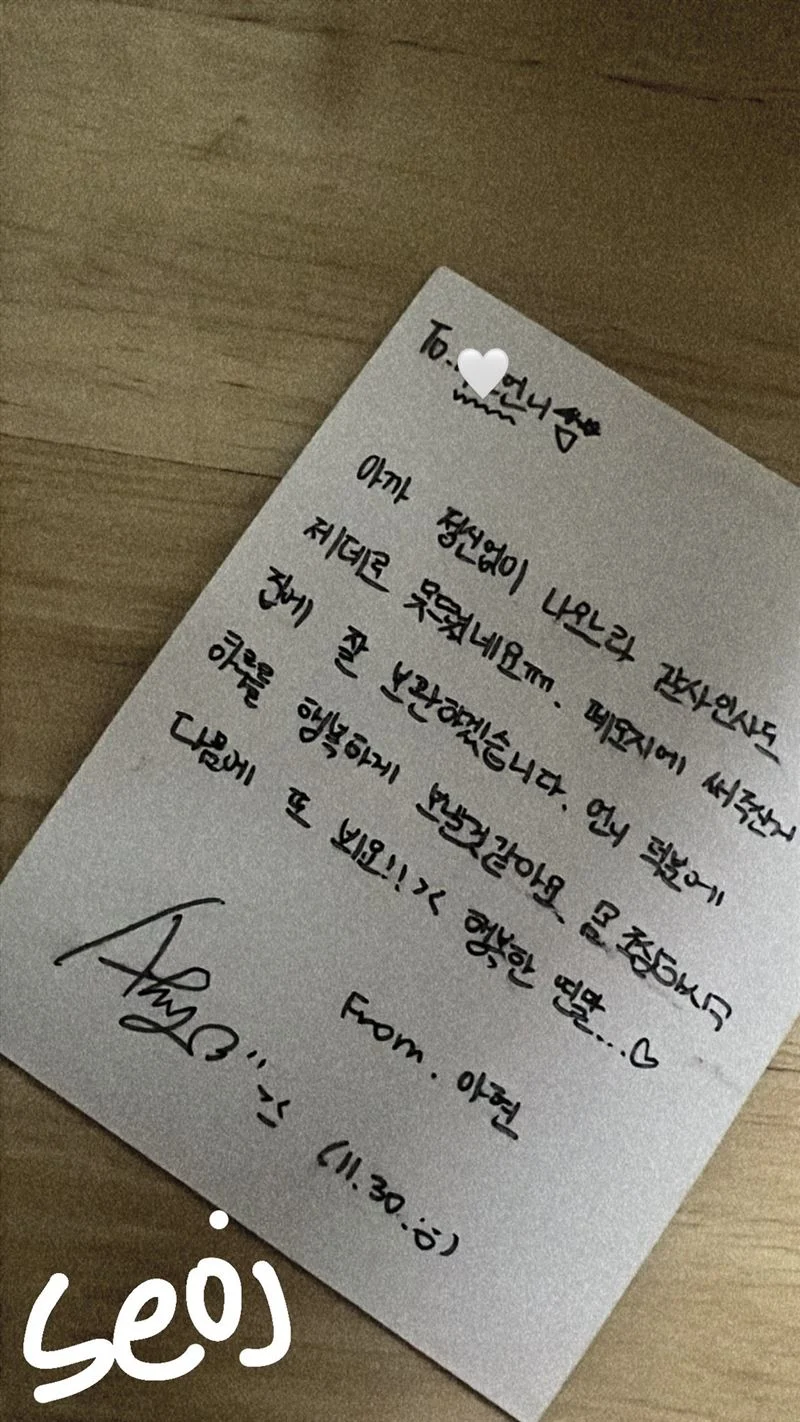 To. 언니
아까 정신없이 나오느라 감사인사도
제데로 못드렸네요ㅠㅠ. 폐묘지에 써주신거
집에 잘 보관하겠습니다. 언니 덕분에
하루를 행복하게 보낼것같아요 몸 조심하시구
다음에 또 뵈요!! >< 행복한 연말...♡
From. 아현
Ahy
>< (11.30.
seoj